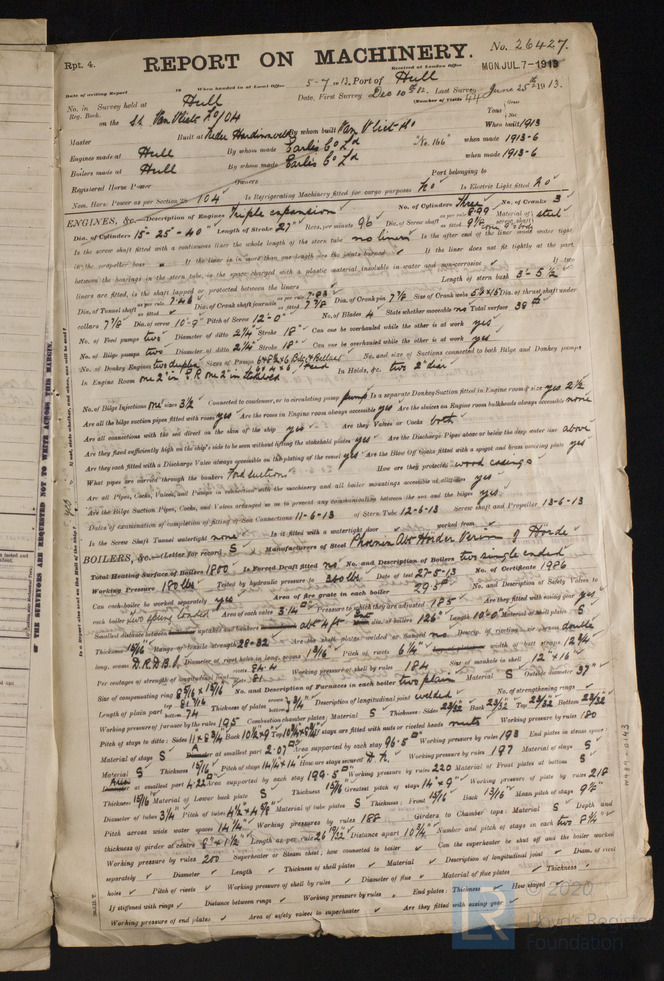 Rpt. 4.
REPORT ON MACHINERY.
No. 26427.
Received at London Office MON. JUL. 7-1913
Date of writing Report When handed in at Local Office 5-7-13. Port of Hull
No. in Survey held at Hull Date, First Survey Dec 10th 12. Last Survey June 25th 1913.
Reg. Book. (Number of Visits 44)
on the Van Vliet Tons Gross Net
Master Built at By whom built Van Vliet & Co "No. 166" When built 1913
Engines made at Hull By whom made Earle's Co Ld when made 1913-6
Boilers made at Hull By whom made Earle's Co Ld when made 1913-6
Registered Horse Power Owners Port belonging to
Nom. Horse Power as per Section 28 104 Is Refrigerating Machinery fitted for cargo purposes No Is Electric Light fitted No
ENGINES, &c.—Description of Engines Triple expansion No. of Cylinders Three No. of Cranks 3
Dia. of Cylinders 15- 25 - 40" Length of Stroke 27" Revs. per minute 96 Dia. of Screw shaft as per rule 8.99 as fitted 9 1/8 Material of screw shaft steel
Is the screw shaft fitted with a continuous liner the whole length of the stern tube no liners Is the after end of the liner made water tight
in the propeller boss If the liner is in more than one length are the joints burned If the liner does not fit tightly at the part
between the bearings in the stern tube, is the space charged with a plastic material insoluble in water and non-corrosive If two
liners are fitted, is the shaft lapped or protected between the liners Length of stern bush 3-5 1/2
Dia. of Tunnel shaft as per rule 7.46 as fitted Dia. of Crank shaft journals as per rule 7.83 as fitted 7 7/8 Dia. of Crank pin 7 7/8 Size of Crank webs Dia. of thrust shaft under
collars 7 7/8 Dia. of screw 10-9" Pitch of Screw 12-0" No. of Blades 4 State whether moveable no Total surface 38
No. of Feed pumps two Diameter of ditto 2 1/4 Stroke 18" Can one be overhauled while the other is at work yes
No. of Bilge pumps two Diameter of ditto 2 1/4 Stroke 18" Can one be overhauled while the other is at work yes
No. of Donkey Engines two duplex Sizes of Pumps No. and size of Suctions connected to both Bilge and Donkey pumps
In Engine Room In Holds, &c. two 2" dia.
No. of Bilge Injections one sizes 3 1/2 Connected to condenser, or to circulating pump pump Is a separate Donkey Suction fitted in Engine room & size yes 2 1/2
Are all the bilge suction pipes fitted with roses yes Are the roses in Engine room always accessible yes Are the sluices on Engine room bulkheads always accessible none
Are all connections with the sea direct on the skin of the ship yes Are they Valves or Cocks both
Are they fixed sufficiently high on the ship's side to be seen without lifting the stokehold plates yes Are the Discharge Pipes above or below the deep water line above
Are they each fitted with a Discharge Valve always accessible on the plating of the vessel yes Are the Blow Off Cocks fitted with a spigot and brass covering plate yes
What pipes are carried through the bunkers How are they protected wood casings
Are all Pipes, Cocks, Valves, and Pumps in connection with the machinery and all boiler mountings accessible at all times yes
Are the Bilge Suction Pipes, Cocks, and Valves arranged so as to prevent any communication between the sea and the bilges yes
Dates of examination of completion of fitting of Sea Connections 11-6-13 of Stern Tube 12-6-13 Screw shaft and Propeller 13-6-13
Is the Screw Shaft Tunnel watertight none Is it fitted with a watertight door worked from
BOILERS, &c.—(Letter for record S) Manufacturers of Steel Phoenix Abt Horder Verein of Horde
Total Heating Surface of Boilers 1800 Is Forced Draft fitted no No. and Description of Boilers two single ended
Working Pressure 180 lbs Tested by hydraulic pressure to 360 lbs Date of test 27-5-13 No. of Certificate 1986
Can each boiler be worked separately yes Area of fire grate in each boiler 29.5 No. and Description of Safety Valves to
each boiler two spring loaded Area of each valve 3.14 Pressure to which they are adjusted 185 Are they fitted with easing gear yes
Smallest distance between boilers or uptakes and bunkers Mean dia. of boilers 126" Length 10-0" Material of shell plates S
Thickness 15/16 Range of tensile strength 28-32 Are the shell plates welded or flanged no Descrip. of riveting: cir. seams double
long. seams D.R.D.B.S. Diameter of rivet holes in long. seams 15/16 Pitch of rivets 6 1/4 width of butt straps 12 3/4
Per centages of strength of longitudinal joint 84.4 Working pressure of shell by rules 184 Size of manhole in shell 12" x 16"
Size of compensating ring No. and Description of Furnaces in each boiler two plain Material S Outside diameter 37"
Length of plain part top bottom 74 Thickness of plates Description of longitudinal joint welded No. of strengthening rings
Working pressure of furnace by the rules 195 Combustion chamber plates: Material S Thickness: Sides 23/32 Back 23/32 Top 23/32 Bottom 23/32
Pitch of stays to ditto: Sides Back Top If stays are fitted with nuts or riveted heads nuts Working pressure by rules 180
Material of stays S at smallest part 2.07 Area supported by each stay 96.5 Working pressure by rules 193 End plates in steam space:
Material S Thickness 15/16 Pitch of stays 14 1/4 x 14 How are stays secured Working pressure by rules 197 Material of stays S
Area at smallest part 4.22 Area supported by each stay 199.5 Working pressure by rules 220 Material of Front plates at bottom S
Thickness 15/16 Material of Lower back plate S Thickness 15/16 Greatest pitch of stays 14" x 9" Working pressure of plate by rules 218
Diameter of tubes 3 1/4 Pitch of tubes Material of tube plates S Thickness: Front 15/16 Back 13/16 Mean pitch of stays 9 1/2
Pitch across wide water spaces 14 1/2" Working pressures by rules 188 Girders to Chamber tops: Material S Depth and
thickness of girder at centre 8" x 1 1/2" Length as per rule 26 19/32 Distance apart 10 1/4" Number and pitch of stays in each two 8 1/2"
Working pressure by rules 200 Superheater or Steam chest; how connected to boiler Can the superheater be shut off and the boiler worked
separately Diameter Length Thickness of shell plates Material Description of longitudinal joint Diam. of rivet
holes Pitch of rivets Working pressure of shell by rules Diameter of flue Material of flue plates Thickness
If stiffened with rings Distance between rings Working pressure by rules End plates: Thickness How stayed
Working pressure of end plates Area of safety valves to superheater Are they fitted with easing gear
OF THE SURVEYORS ARE REQUESTED NOT TO WRITE ACROSS THIS MARGIN.
© 2020
Lloyd's Register
Foundation